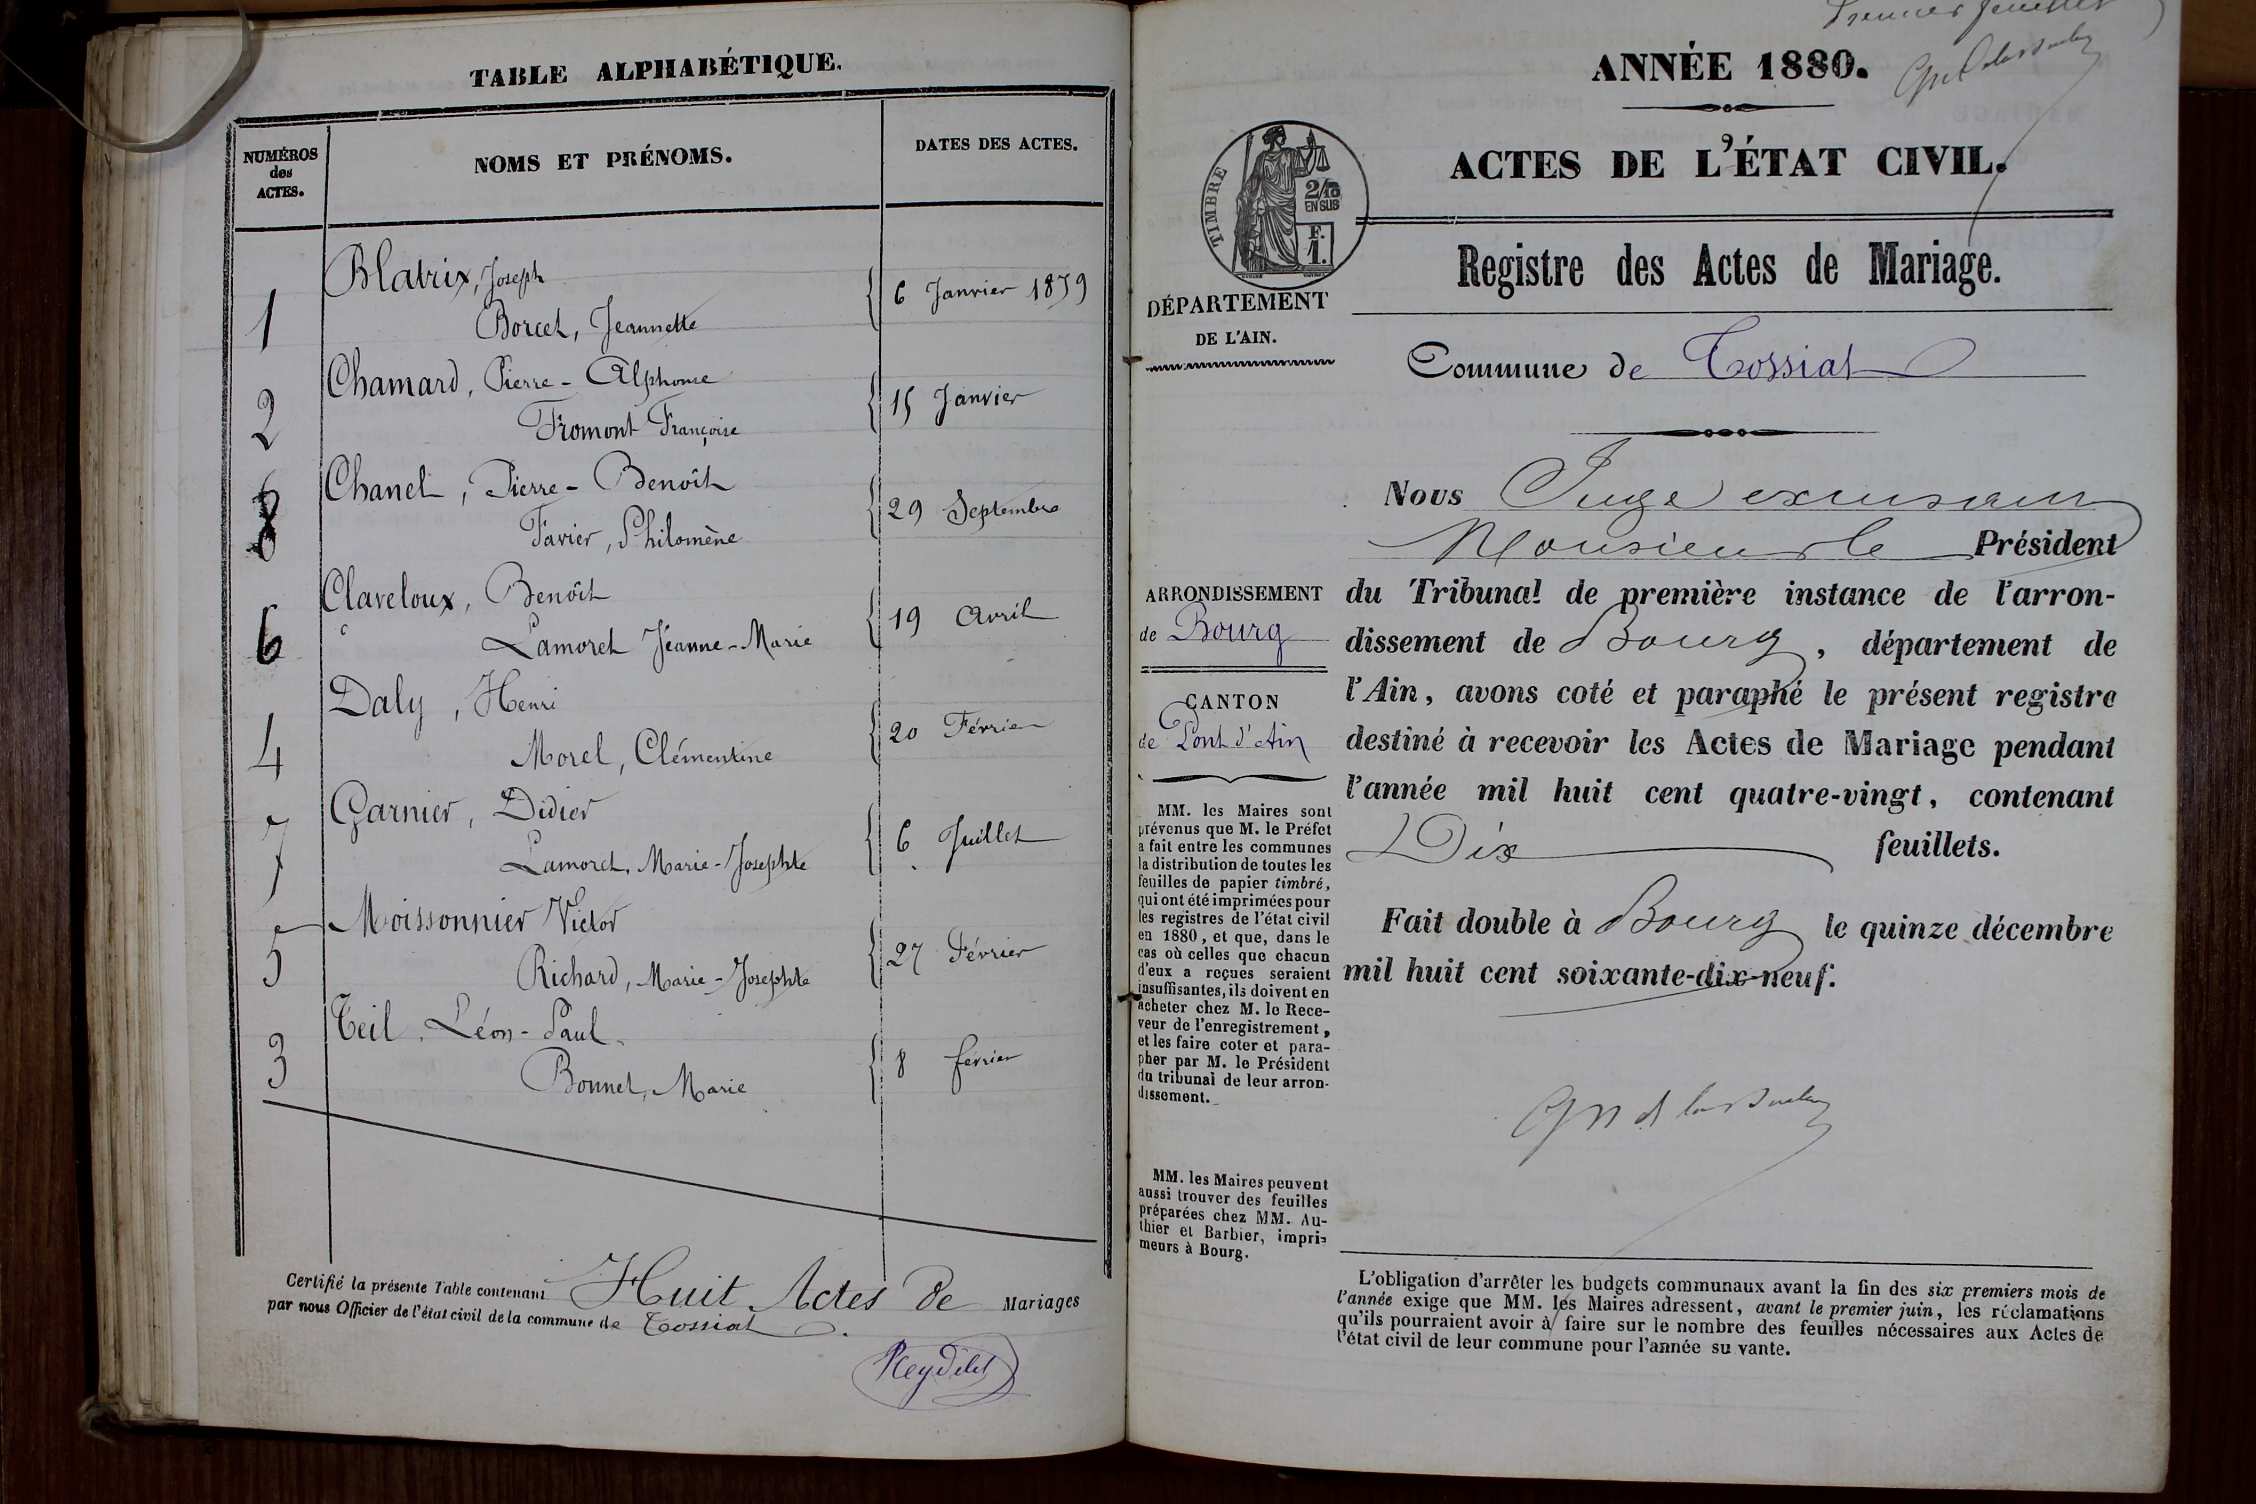 TABLE ALPHABÉTIQUE.
NUMÉROS
des
ACTES.
NOMS ET PRÉNOMS.
DATES DES ACTES.
1
Blatrix, Joseph
Borcet, Jeannette
6 Janvier 1879
2
Chamard, Pierre-Alphonse
Fromont Françoise
15 Janvier
8
Chanel, Pierre-Benoît
Favier, Philomène
29 Septembre
6
Claveloux, Benoît
Lamoret Jeanne-Marie
19 Avril
4
Daly, Henri
Morel, Clémentine
20 Février
7
Garnier, Didier
Lamoret, Marie-Josephte
6 Juillet
5
Moissonnier Victor
Richard, Marie-Josephte
27 Février
3
Teil, Léon-Paul
Bonnet, Marie
8 février
Certifié la présente Table contenant Huit Actes de Mariages
par nous Officier de l'état civil de la commune de Tossiat
Reydelet
Premier feuillet
ANNÉE 1880.
ACTES DE L'ÉTAT CIVIL.
TIMBRE
2/10
EN SUS
F.
1.
Registre des Actes de Mariage.
DÉPARTEMENT
DE L'AIN.
Commune de Tossiat
ARRONDISSEMENT
de Bourg
CANTON
de Pont d'Ain
MM. les Maires sont
prévenus que M. le Préfet
a fait entre les communes
la distribution de toutes les
feuilles de papier timbré,
qui ont été imprimées pour
les registres de l'état civil
en 1880, et que, dans le
cas où celles que chacun
d'eux a reçues seraient
insuffisantes, ils doivent en
acheter chez M. le Rece-
veur de l'enregistrement,
et les faire coter et para-
pher par M. le Président
du tribunal de leur arron-
dissement.
MM. les Maires peuvent
aussi trouver des feuilles
préparées chez MM. Au-
thier et Barbier, impri-
meurs à Bourg.
Nous Juge
Monsieur le Président
du Tribunal de première instance de l'arron-
dissement de Bourg, département de
l'Ain, avons coté et paraphé le présent registre
destiné à recevoir les Actes de Mariage pendant
l'année mil huit cent quatre-vingt, contenant
Dix feuillets.
Fait double à Bourg le quinze décembre
mil huit cent soixante-dix-neuf.
L'obligation d'arrêter les budgets communaux avant la fin des six premiers mois de
l'année exige que MM. les Maires adressent, avant le premier juin, les réclamations
qu'ils pourraient avoir à faire sur le nombre des feuilles nécessaires aux Actes de
l'état civil de leur commune pour l'année su vante.